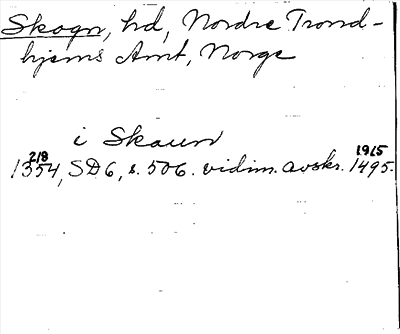 Skogn, hd, Nordre Trond-
hjems Amt, Norge
i Skaun
21/8 1915
1354, SD6, s. 506. vidim. avskr. 1495.